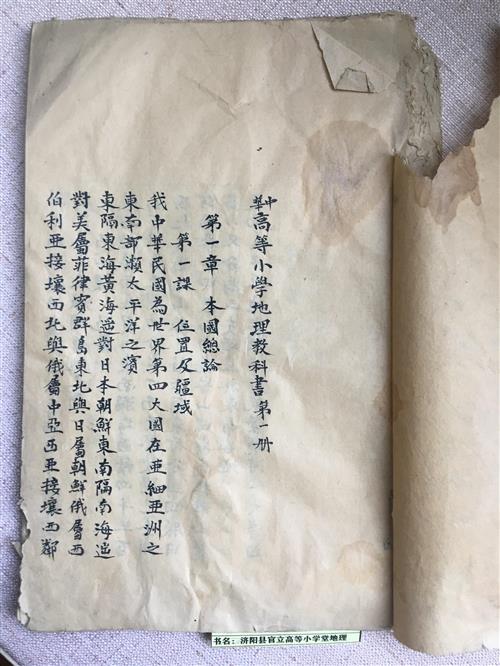 中華高等小學地理教科書第一册
第一章 本國總論
第一課 位置及疆域
我中華民國為世界第四大國在亜細亜洲之
東南部瀕太平洋之濱
東隔東海黃海遥對日本朝鮮東南隔南海遥
對美屬菲律賓群島東北與日屬朝鮮俄屬西
伯利亜接壤西北與俄屬中亞西亜接壤西鄰
书名：济阳县官立高等小学堂地理